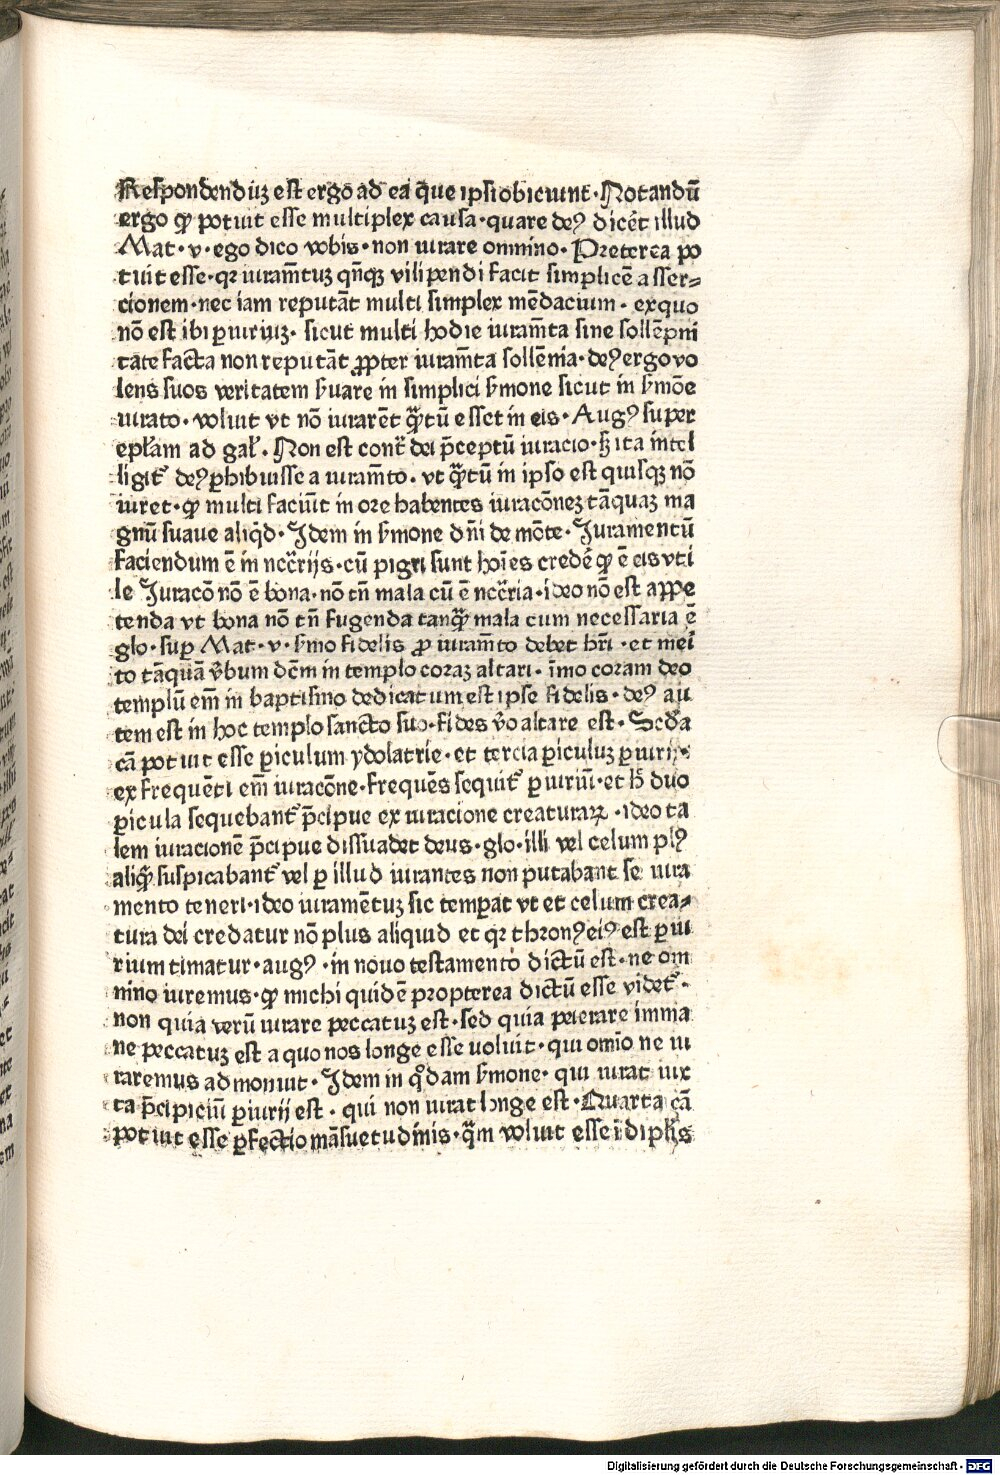 Respondenduꝫ est ergo ad ea que ipsi obiciunt·Notandū
ergo ꝙ potuit esse multiplex causa·quare deꝰ dicēt illud
Mat·v·ego dico vobis·non iurare omnino·Preterea po
tuit esse·qꝛ iuram̄tuꝫ qn̄qꝫ vilipendi facit simplicē asser⸗
cionem·nec iam reputāt multi simplex mēdacium·exquo
nō est ibi ꝑiuriuꝫ·sicut multi hodie iuram̄ta sine sollēpni
tate facta non reputāt ꝓpter iuram̄ta sollēnia·deꝰ ergo vo
lens suos veritatem s̄uare in simplici s̄mone sicut in s̄mōe
iurato·voluit vt nō iurarēt qᷓtū esset in eis·Augꝰ super
epl̄am ad gal̄·Non est contr̄ dei p̄ceptū iuracio·sꝫ ita intel
ligit̄ deꝰ ꝓhibuisse a iuram̄to·vt qᷓtū in ipso est quisqꝫ nō
iuret·ꝙ multi faciūt in ore habentes iuracōneꝫ tāquaꝫ ma
gnū suaue aliqd̄·Idem in s̄mone dn̄i de mōte·Iuramentū
faciendum ē in nccr̄ijs·cū pigri sunt hoīes credē ꝙ ē eis vti
le Iuracō nō ē bona·nō tn̄ mala cū ē nccr̄ia·ideo nō est appe
tenda vt bona nō tn̄ fugenda tanqᷓ mala cum necessaria ē
glo·suꝑ Mat·v·s̄mo fidelis ꝓ iuram̄to debet hr̄i·et mei
to tāquā v̄bum dc̄m in templo coraꝫ altari·īmo coram deo
templū em̄ in baptismo dedicatum est ipse fidelis·deꝰ au
tem est in hoc templo sancto suo·fides v̄o altare est·Scd̄a
cā potuit esse ꝑiculum ydolatrie·et tercia ꝑiculuꝫ ꝑiurij·
ex frequēti em̄ iuracōne·frequēs sequit̄ ꝑiuriū·et h̄ duo
ꝑicula sequebant̄ p̄cipue ex iuracione creaturaꝝ·ideo ta
lem iuracionē p̄cipue dissuadet deus·glo·illi vel celum plꝰ
aliqᷓ suspicabant̄ vel ꝑ illud iurantes non putabant se iura
mento teneri·ideo iuramētuꝫ sic temꝑat vt et celum crea⸗
tura dei credatur nō plus aliquid et qꝛ thronꝰ eiꝰ est ꝑiu
rium timatur·augꝰ·in nouo testamento dictū est·ne om
nino iuremus·ꝙ michi quidē propterea dictū esse videt̄·
non quia verū iurare peccatuꝫ est·sed quia peierare imma
ne peccatuꝫ est a quo nos longe esse voluit·qui omīo ne iu
raremus admonuit·Idem in qͦdam s̄mone·qui iurat iux
ta p̄cipiciū ꝑiurij est·qui non iurat longe est·Quarta cā
potuit esse ꝑfectio māsuetudinis·qᷓm voluit esse ī dipl̄is
Digitalisierung gefördert durch die Deutsche Forschungsgemeinschaft - DFG